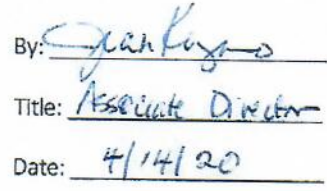 By: Jean
Title: Associate Director
Date: 4/14/20